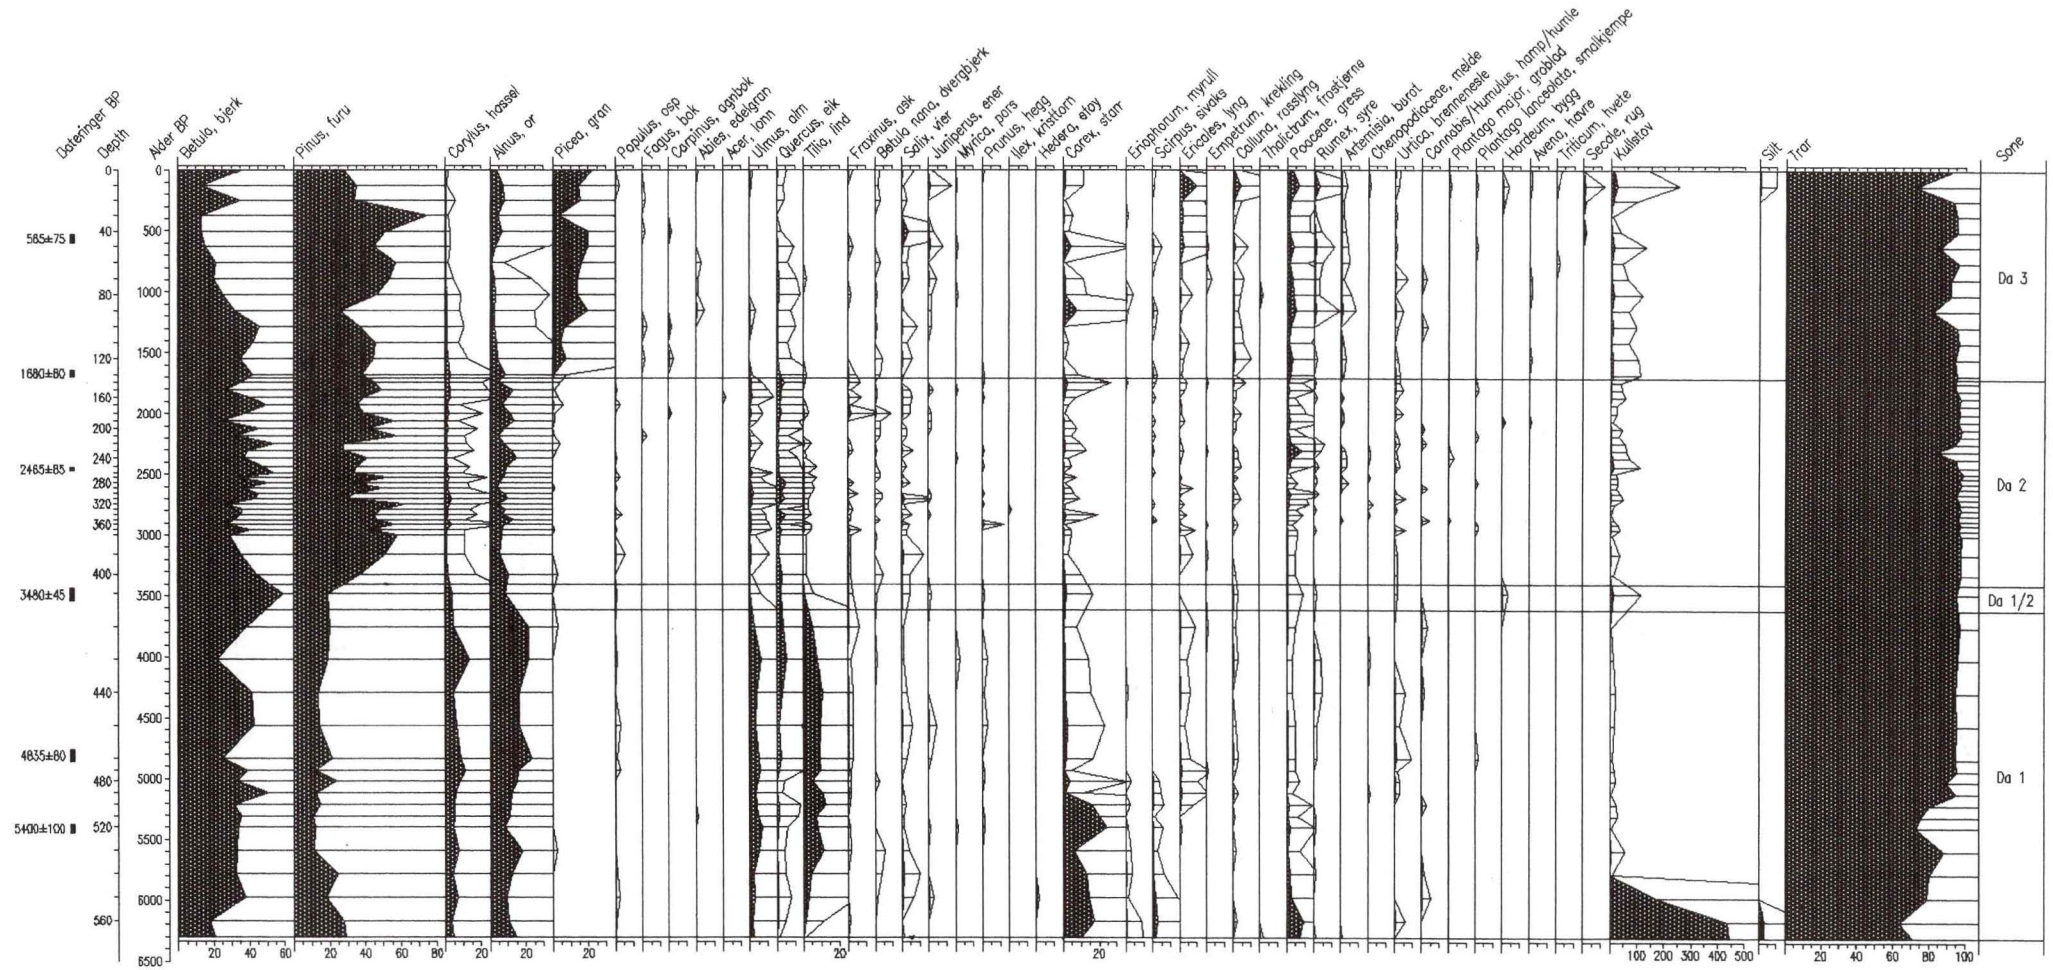 Dateringer BP
Depth
Alder BP
Betula, bjerk
Pinus, furu
Corylus, hassel
Alnus, or
Picea, gran
Populus, osp
Fagus, bok
Carpinus, agnbok
Abies, edelgran
Acer, lønn
Ulmus, alm
Quercus, eik
Tilia, lind
Fraxinus, ask
Betula nana, dvergbjerk
Salix, vier
Juniperus, ener
Myrica, pors
Prunus, hegg
Ilex, kristtorn
Hedera, eføy
Carex, starr
Eriophorum, myrull
Scirpus, sivaks
Ericales, lyng
Empetrum, krekling
Calluna, røsslyng
Thalictrum, frostjerne
Poaceae, gress
Rumex, syre
Artemisia, burot
Chenopodiaceae, melde
Urtica, brennenesle
Cannabis/Humulus, hamp/humle
Plantago major, groblad
Plantago lanceolata, smalkjempe
Hordeum, bygg
Avena, havre
Triticum, hvete
Secale, rug
Kullstøv
Silt
Trær
Sone
565±75
1680±80
2465±85
3480±45
4835±80
5400±100
0
40
80
120
160
200
240
280
320
360
400
440
480
520
560
0
500
1000
1500
2000
2500
3000
3500
4000
4500
5000
5500
6000
6500
Da 3
Da 2
Da 1/2
Da 1
20 40 60 20 40 60 80 20 20 20 20 20 100 200 300 400 500 20 40 60 80 100